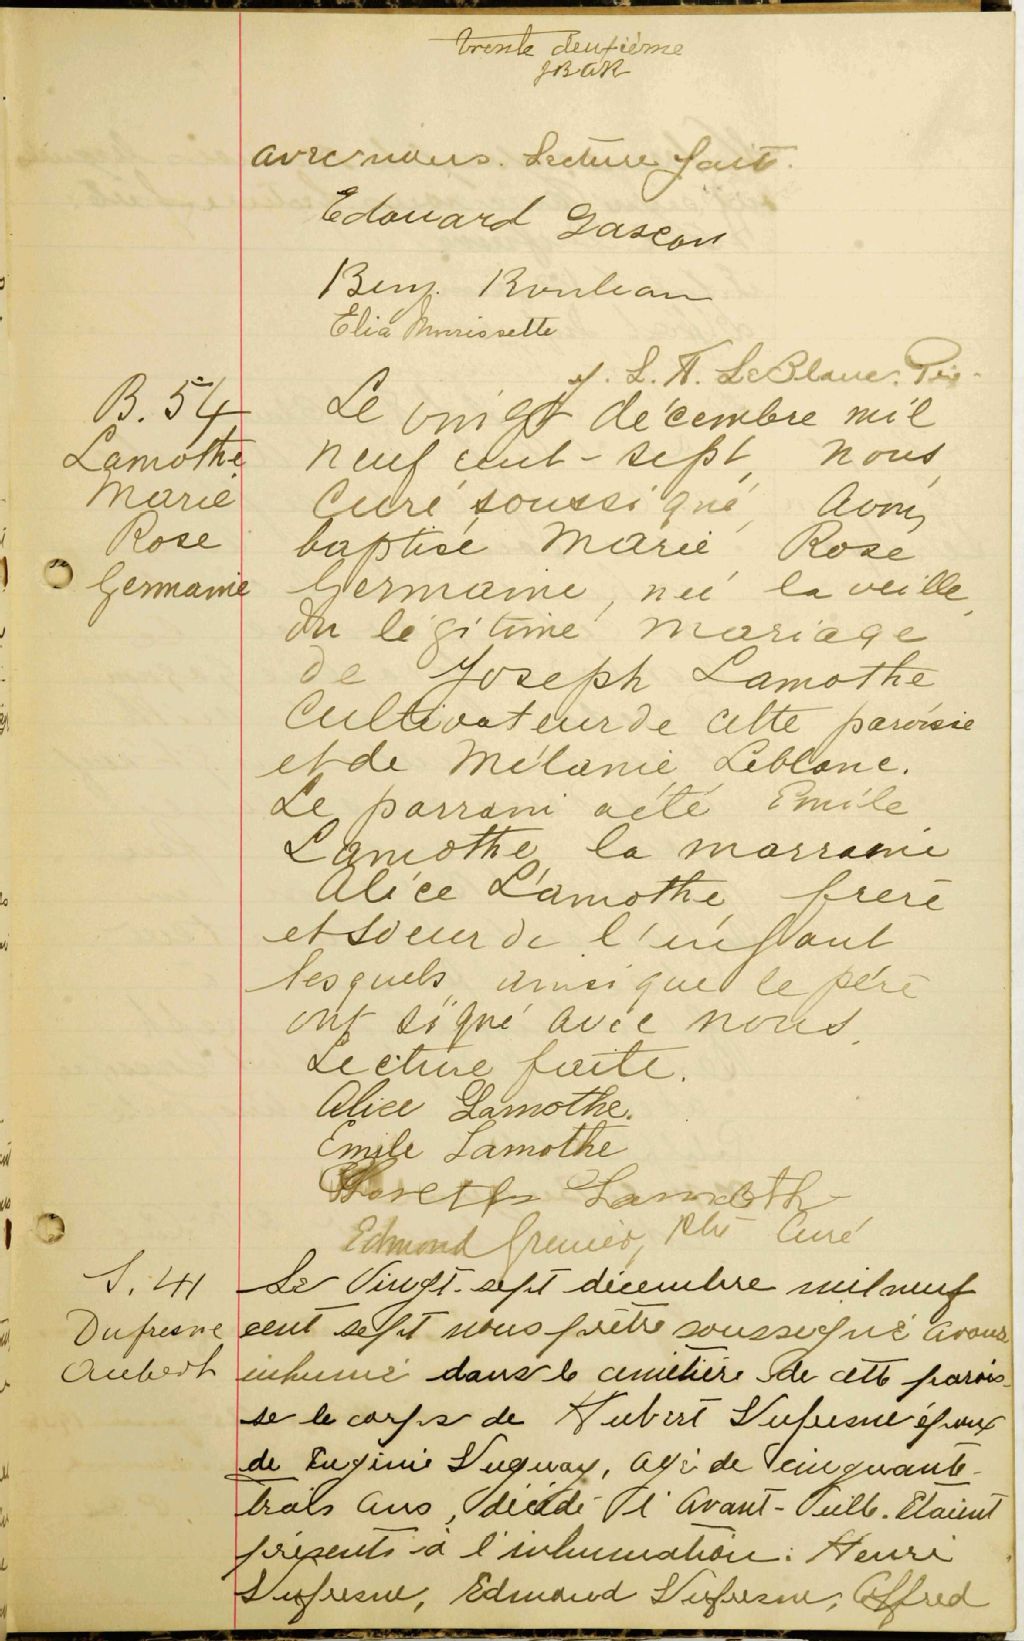 trente deuxième
JBAR
avec nous. Lecture fait.
Edouard Gascon
Benj. Rouleau
Elia Morissette
J. L. A. LeBlanc. Ptr.
B. 54
Lamothe
Marie
Rose
Germaine
Le vingt décembre mil
neuf cent-sept, nous
Curé soussigné, avons
baptisé Marie Rose
Germaine, née la veille
du légitime mariage
de Joseph Lamothe
Cultivateur de cette paroisse
et de Mélanie Leblanc.
Le parrain a été Emile
Lamothe la marraine
Alice Lamothe, frère
et soeur de l'enfant
lesquels ainsi que le père
ont signé avec nous.
Lecture faite.
Alice Lamothe.
Emile Lamothe
Lamoth
Edmond Grenier, Ptr Curé
S. 41
Dufresne
Aubert
Le Vingt-sept décembre mil neuf
cent sept nous prêtre soussigné avons
inhumé dans le cimetière de cette parois-
se le corps de Hubert Dufresne époux
de Eugénie Duguay, agé de cinquante-
trois ans, décédé l'avant-veille. Etaient
présents à l'inhumation: Henri
Dufresne, Edmond Dufresne, Alfred